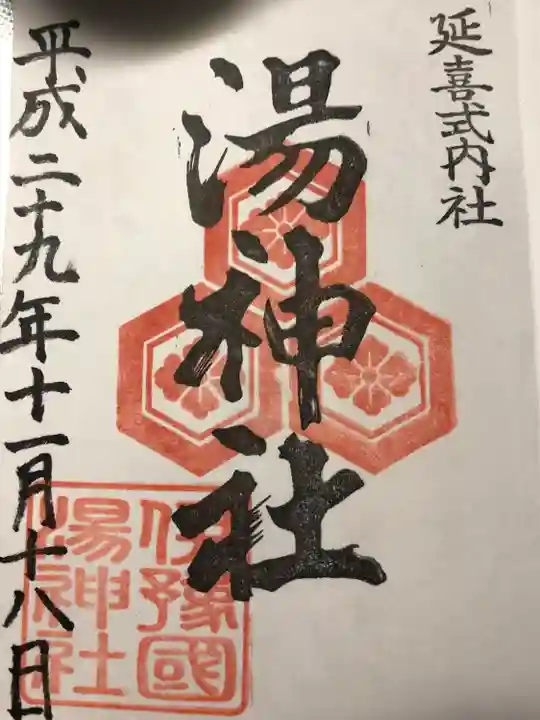 延喜式内社
湯神社
平成二十九年十一月十八日
伊豫國
湯神社